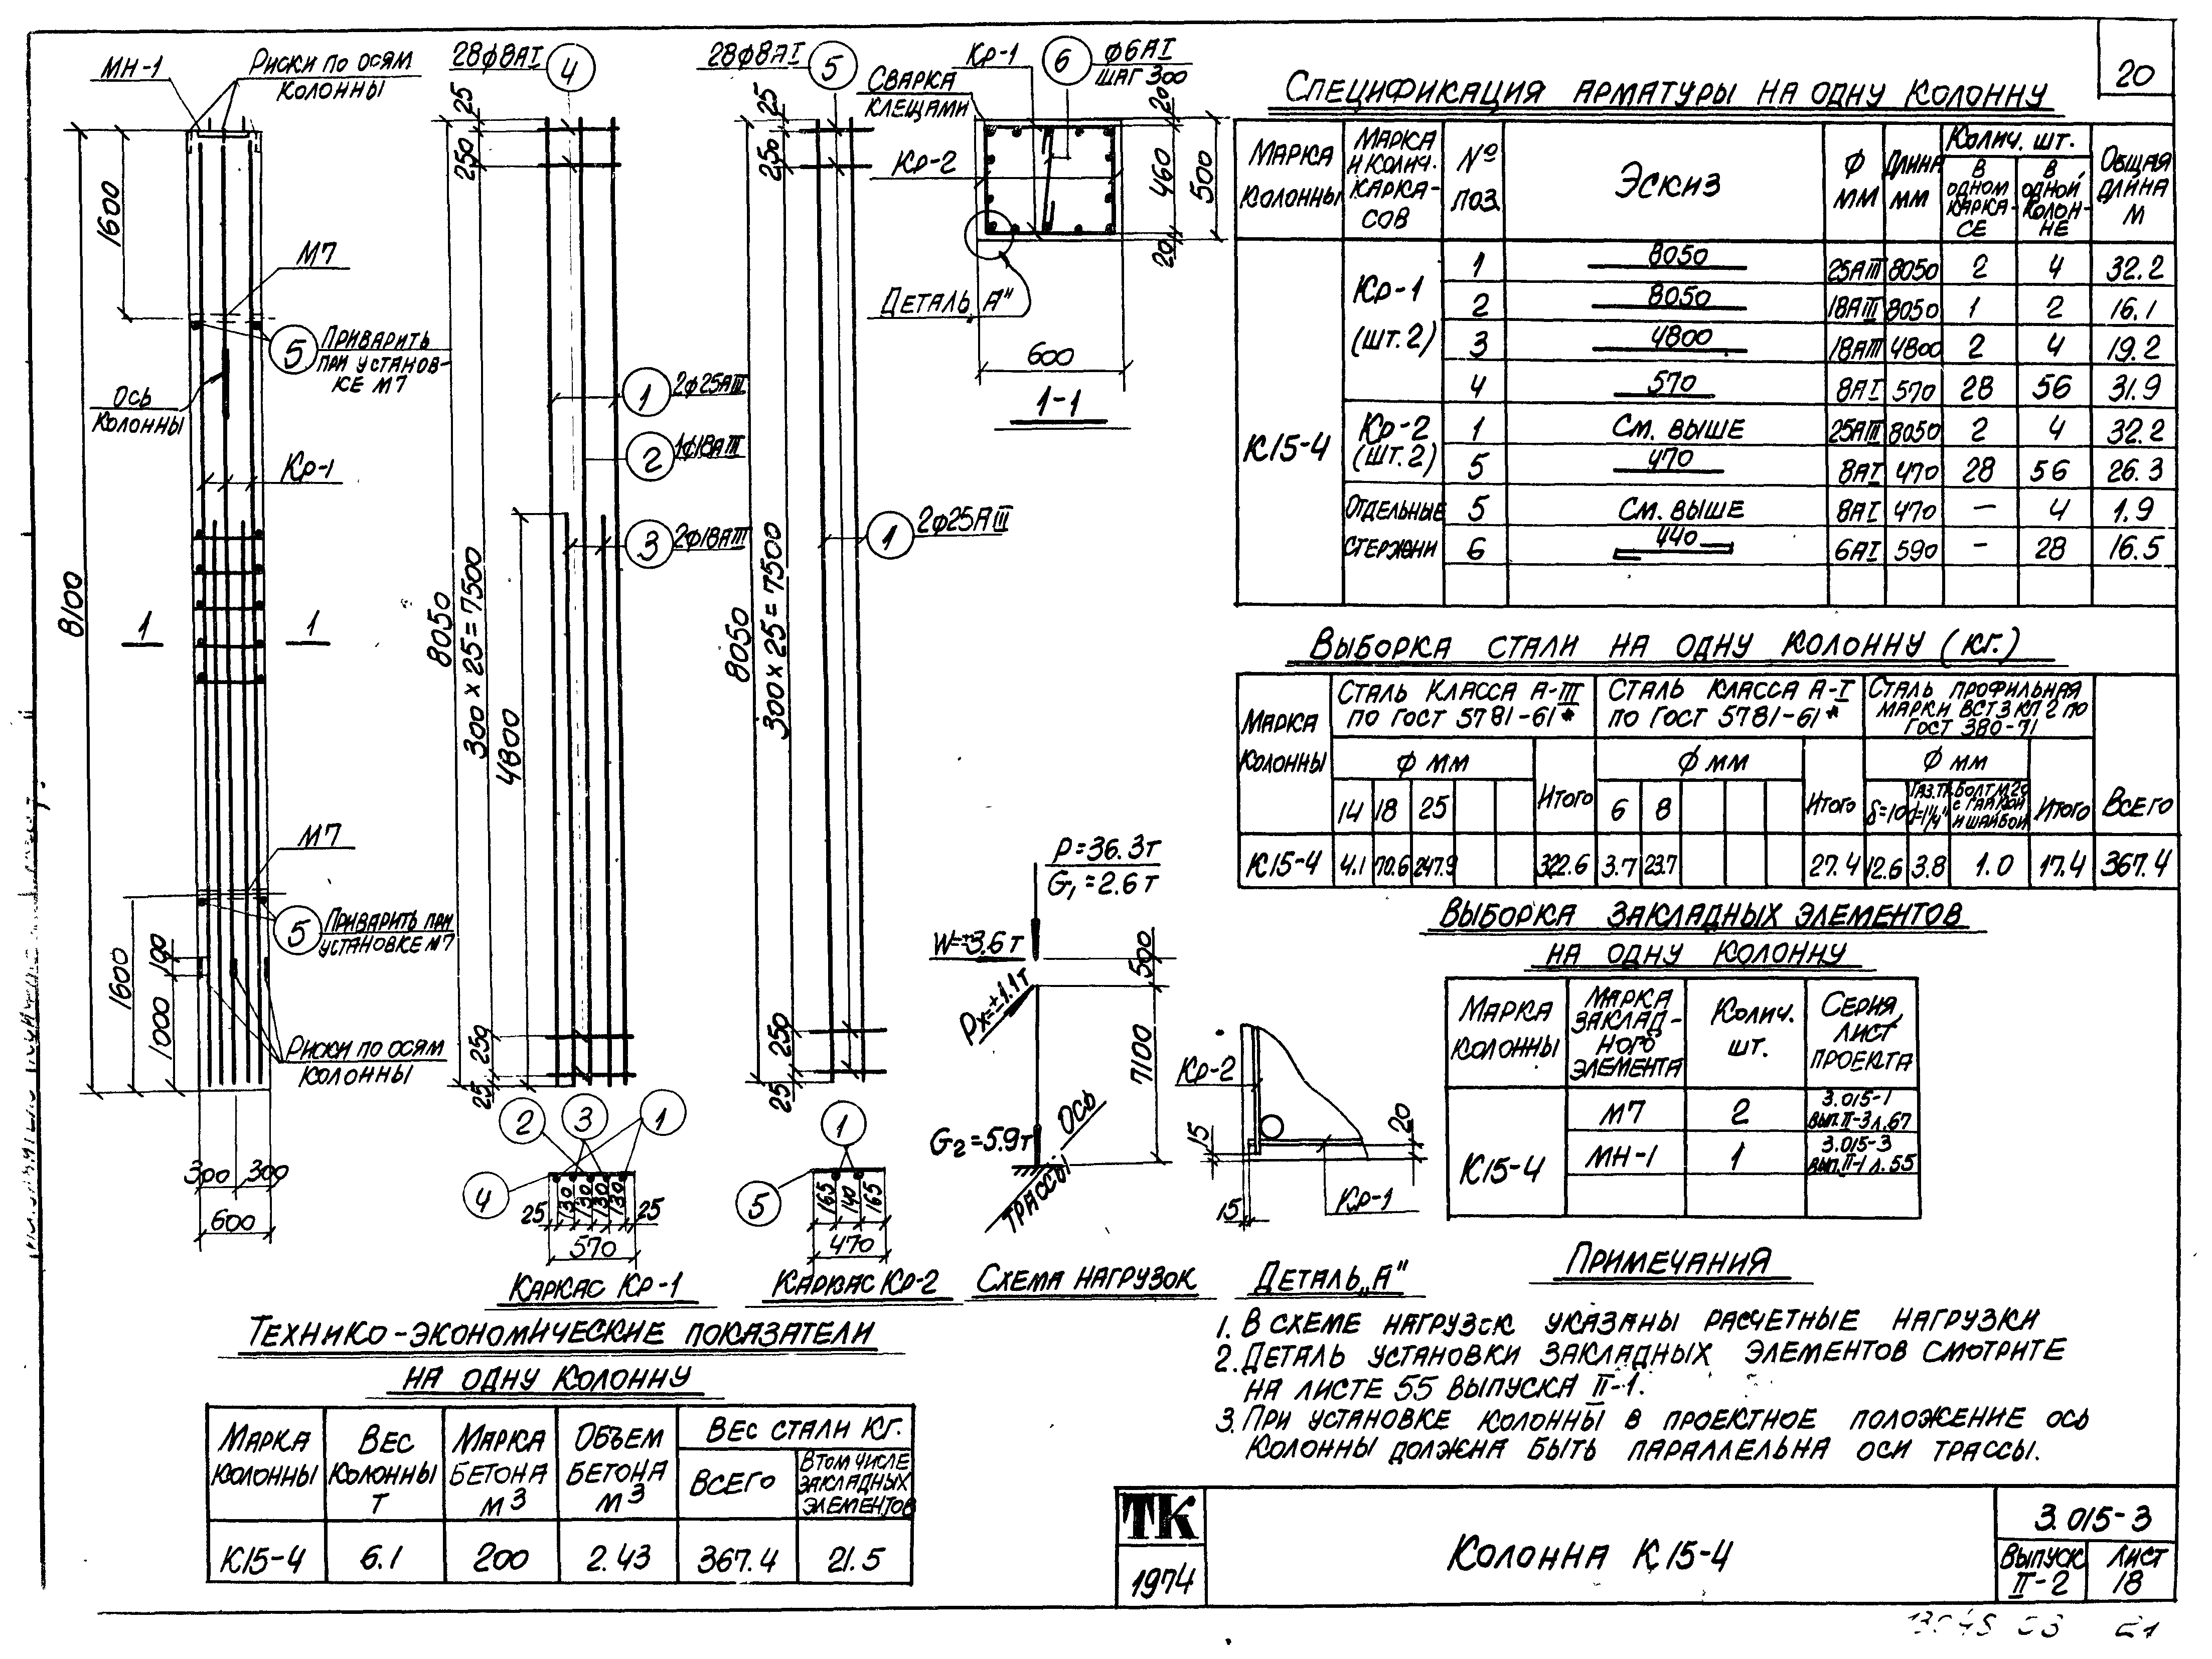 20
МН-1
Риски по осям
колонны
1600
М7
5
Приварить
при установ-
ке М7
Ось
колонны
Кр-1
8100
1
1
М7
5
Приварить при
установке М7
1600
100
1000
Риски по осям
колонны
300
300
600
28ф8АI
4
25
250
8050
300х25=7500
4800
1
2ф25АIII
2
1ф18АIII
3
2ф18АIII
250
25
2
3
1
4
25
130
130
130
130
25
570
Каркас Кр-1
28ф8АI
5
25
250
8050
300х25=7500
1
2ф25АIII
250
25
1
5
165
140
165
470
Каркас Кр-2
Кр-1
6
ф6АI
шаг 300
Сварка
клещами
Кр-2
20
460
20
500
Деталь „А"
600
1-1
Р=36.3т
G₁=2.6т
W=±3.6т
Рх=±1.1т
500
7100
G₂=5.9т
Ось
трассы
Схема нагрузок
Кр-2
15
20
15
Кр-1
Деталь „А"
Спецификация арматуры на одну колонну
Марка колонны
Марка и колич. карка-сов
№ поз.
Эскиз
ф мм
Длина мм
Колич. шт.
В одном карка-се
В одной колон-не
Общая длина м
К15-4
Кр-1 (шт.2)
1 8050 25АIII 8050 2 4 32.2
2 8050 18АIII 8050 1 2 16.1
3 4800 18АIII 4800 2 4 19.2
4 570 8АI 570 28 56 31.9
Кр-2 (шт.2)
1 См. выше 25АIII 8050 2 4 32.2
5 470 8АI 470 28 56 26.3
Отдельные стержни
5 См. выше 8АI 470 – 4 1.9
6 440 6АI 590 – 28 16.5
Выборка стали на одну колонну (кг.)
Марка колонны
Сталь класса А-III по ГОСТ 5781-61*
Сталь класса А-I по ГОСТ 5781-61*
Сталь профильная марки ВСТ3КП2 по ГОСТ 380-71
Всего
ф мм
Итого
ф мм
Итого
ф мм
Итого
14 18 25
6 8
δ=10
Газ.тр. d=1¼"
Болт М20 с гайкой и шайбой
К15-4 4.1 70.6 247.9 322.6 3.7 23.7 27.4 12.6 3.8 1.0 17.4 367.4
Выборка закладных элементов
на одну колонну
Марка колонны
Марка заклад-ного элемента
Колич. шт.
Серия, лист проекта
К15-4
М7 2 3.015-1 вып.II-3 л.67
МН-1 1 3.015-3 вып.II-1 л.55
Примечания
1. В схеме нагрузок указаны расчетные нагрузки
2. Деталь установки закладных элементов смотрите
на листе 55 выпуска II-1.
3. При установке колонны в проектное положение ось
колонны должна быть параллельна оси трассы.
Технико-экономические показатели
на одну колонну
Марка колонны
Вес колонны т
Марка бетона м3
Объем бетона м3
Вес стали кг.
Всего
В том числе закладных элементов
К15-4 6.1 200 2.43 367.4 21.5
ТК
1974
Колонна К15-4
3.015-3
Выпуск
II-2
Лист
18